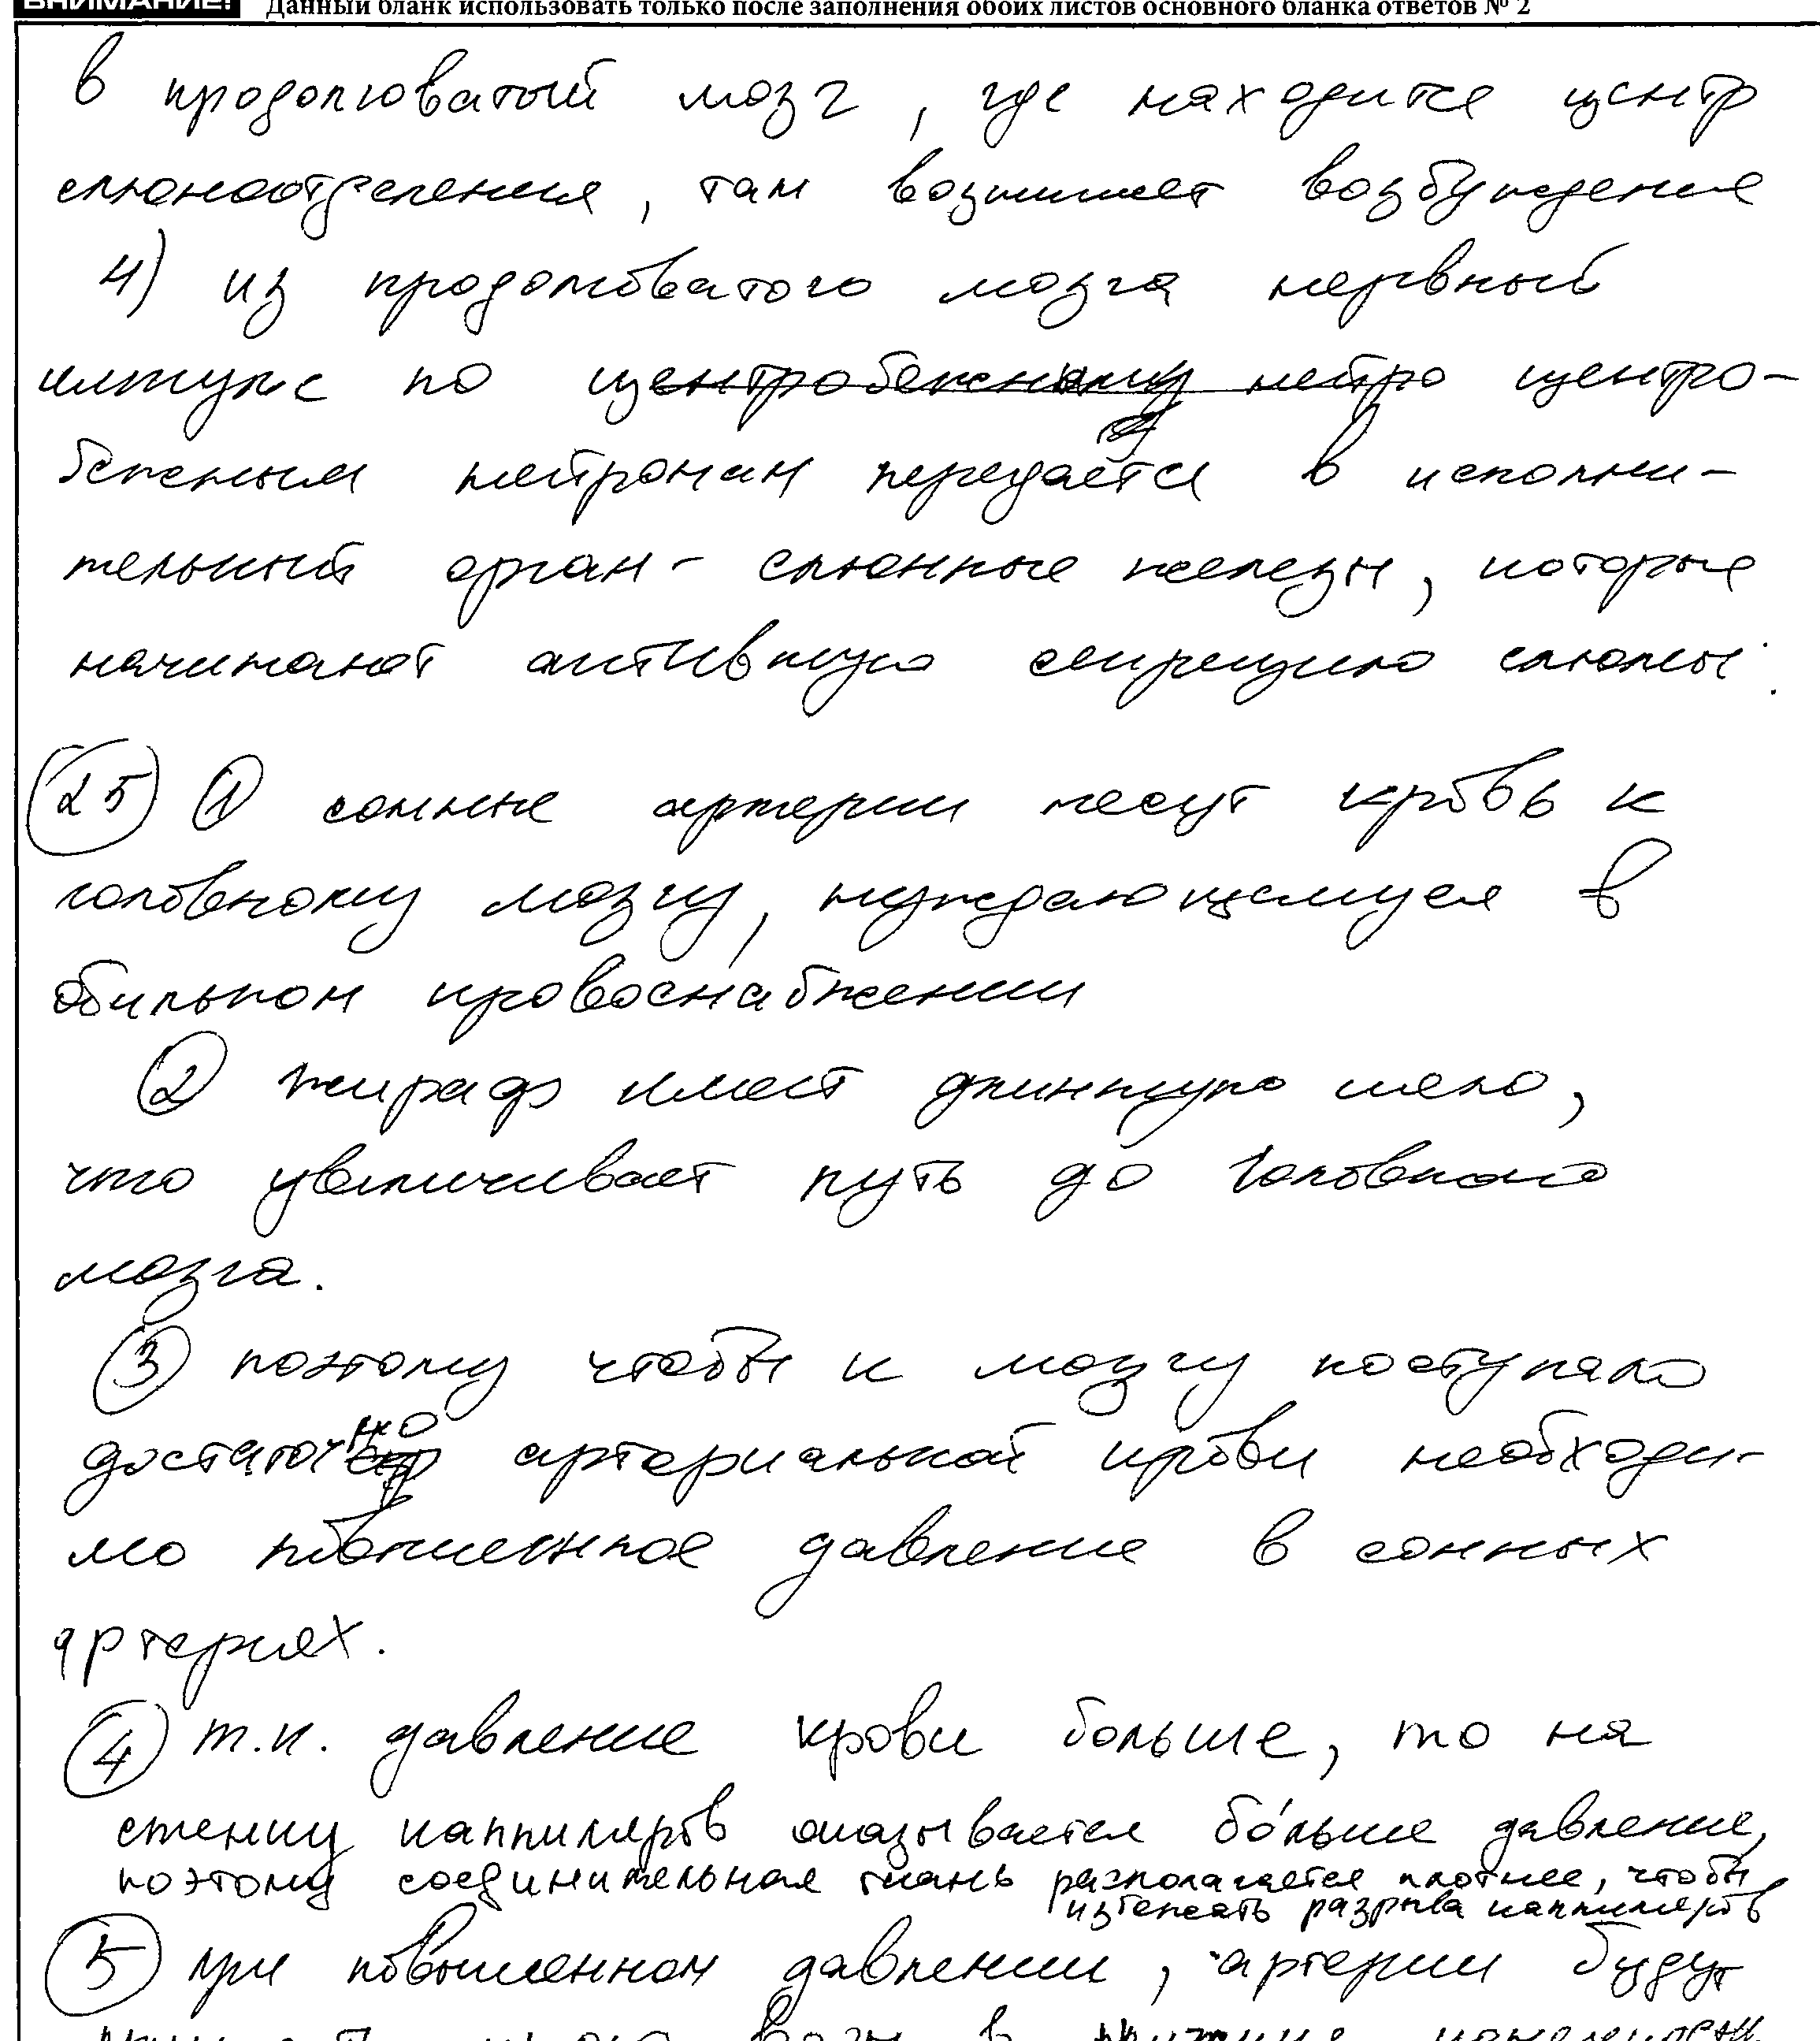 ВНИМАНИЕ! Данный бланк использовать только после заполнения обоих листов основного бланка ответов № 2
в продолговатый мозг, где находится центр
слюноотделения, там возникает возбуждение
4) из продолговатого мозга нервный
импульс по центробежному нейро центро-
бежным нейронам передаётся в исполни-
тельный орган - слюнные железы, которые
начинают активную секрецию слюны.
25 1 сонные артерии несут кровь к
головному мозгу, нуждающемуся в
обильном кровоснабжении
2 жираф имеет длинную шею,
что увеличивает путь до головного
мозга.
3 поэтому чтобы к мозгу поступало
достаточно артериальной крови необходи-
мо повышенное давление в сонных
артериях.
4 т.к. давление крови больше, то на
стенку каппиляров оказывается бо́льше давление,
поэтому соединительная ткань располагается плотнее, чтобы
избежать разрыва каппиляров
5 при повышенном давлении, артерии будут